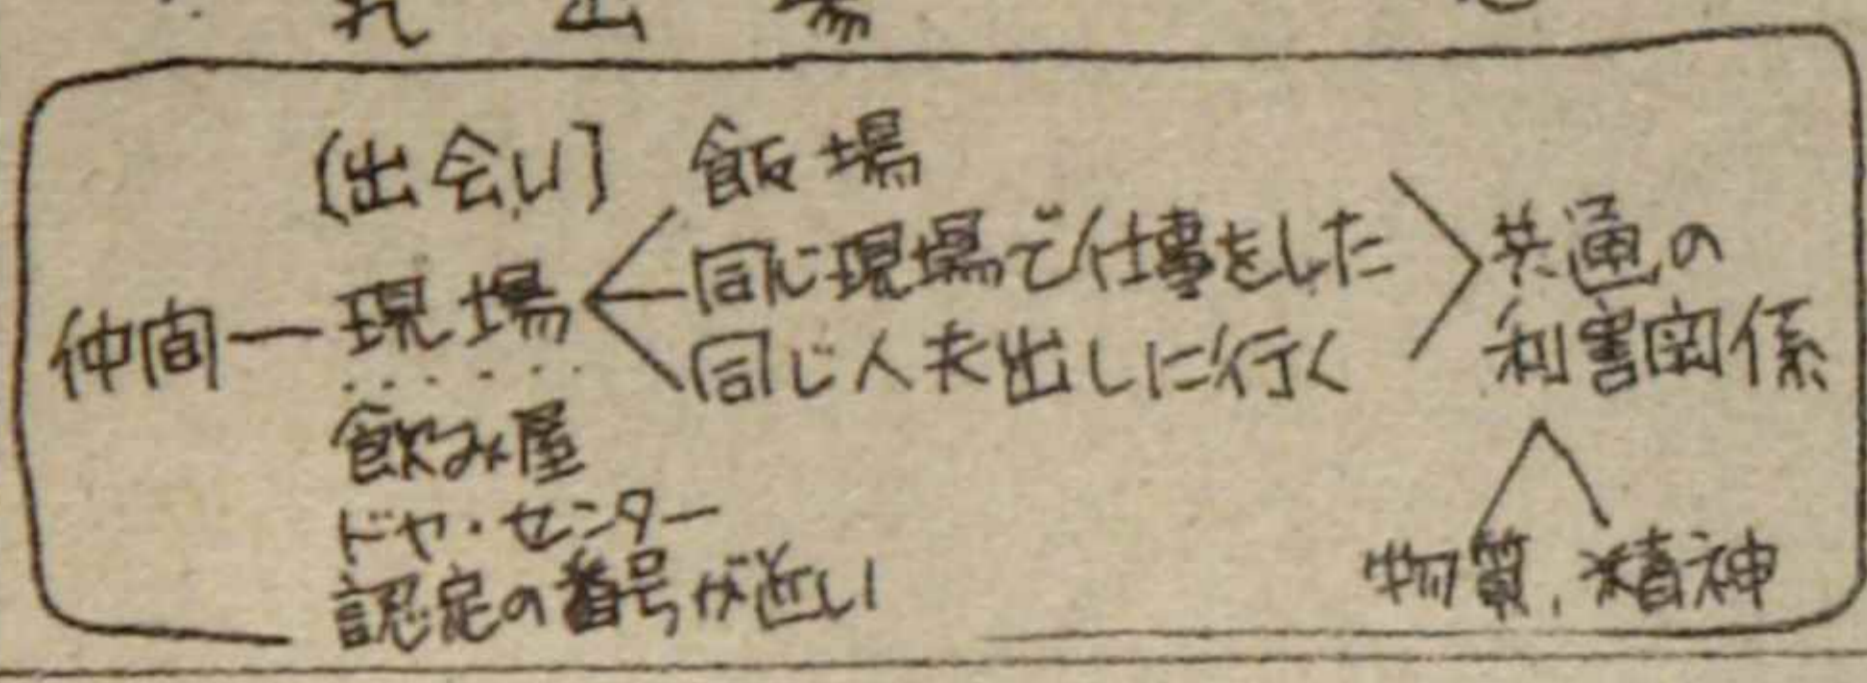 〔出会い〕 飯場
同じ現場で仕事をした
仲間―現場
同じ人夫出しに行く
共通の
利害関係
飲み屋
ドヤ・センター
認定の番号が近い
物質、精神